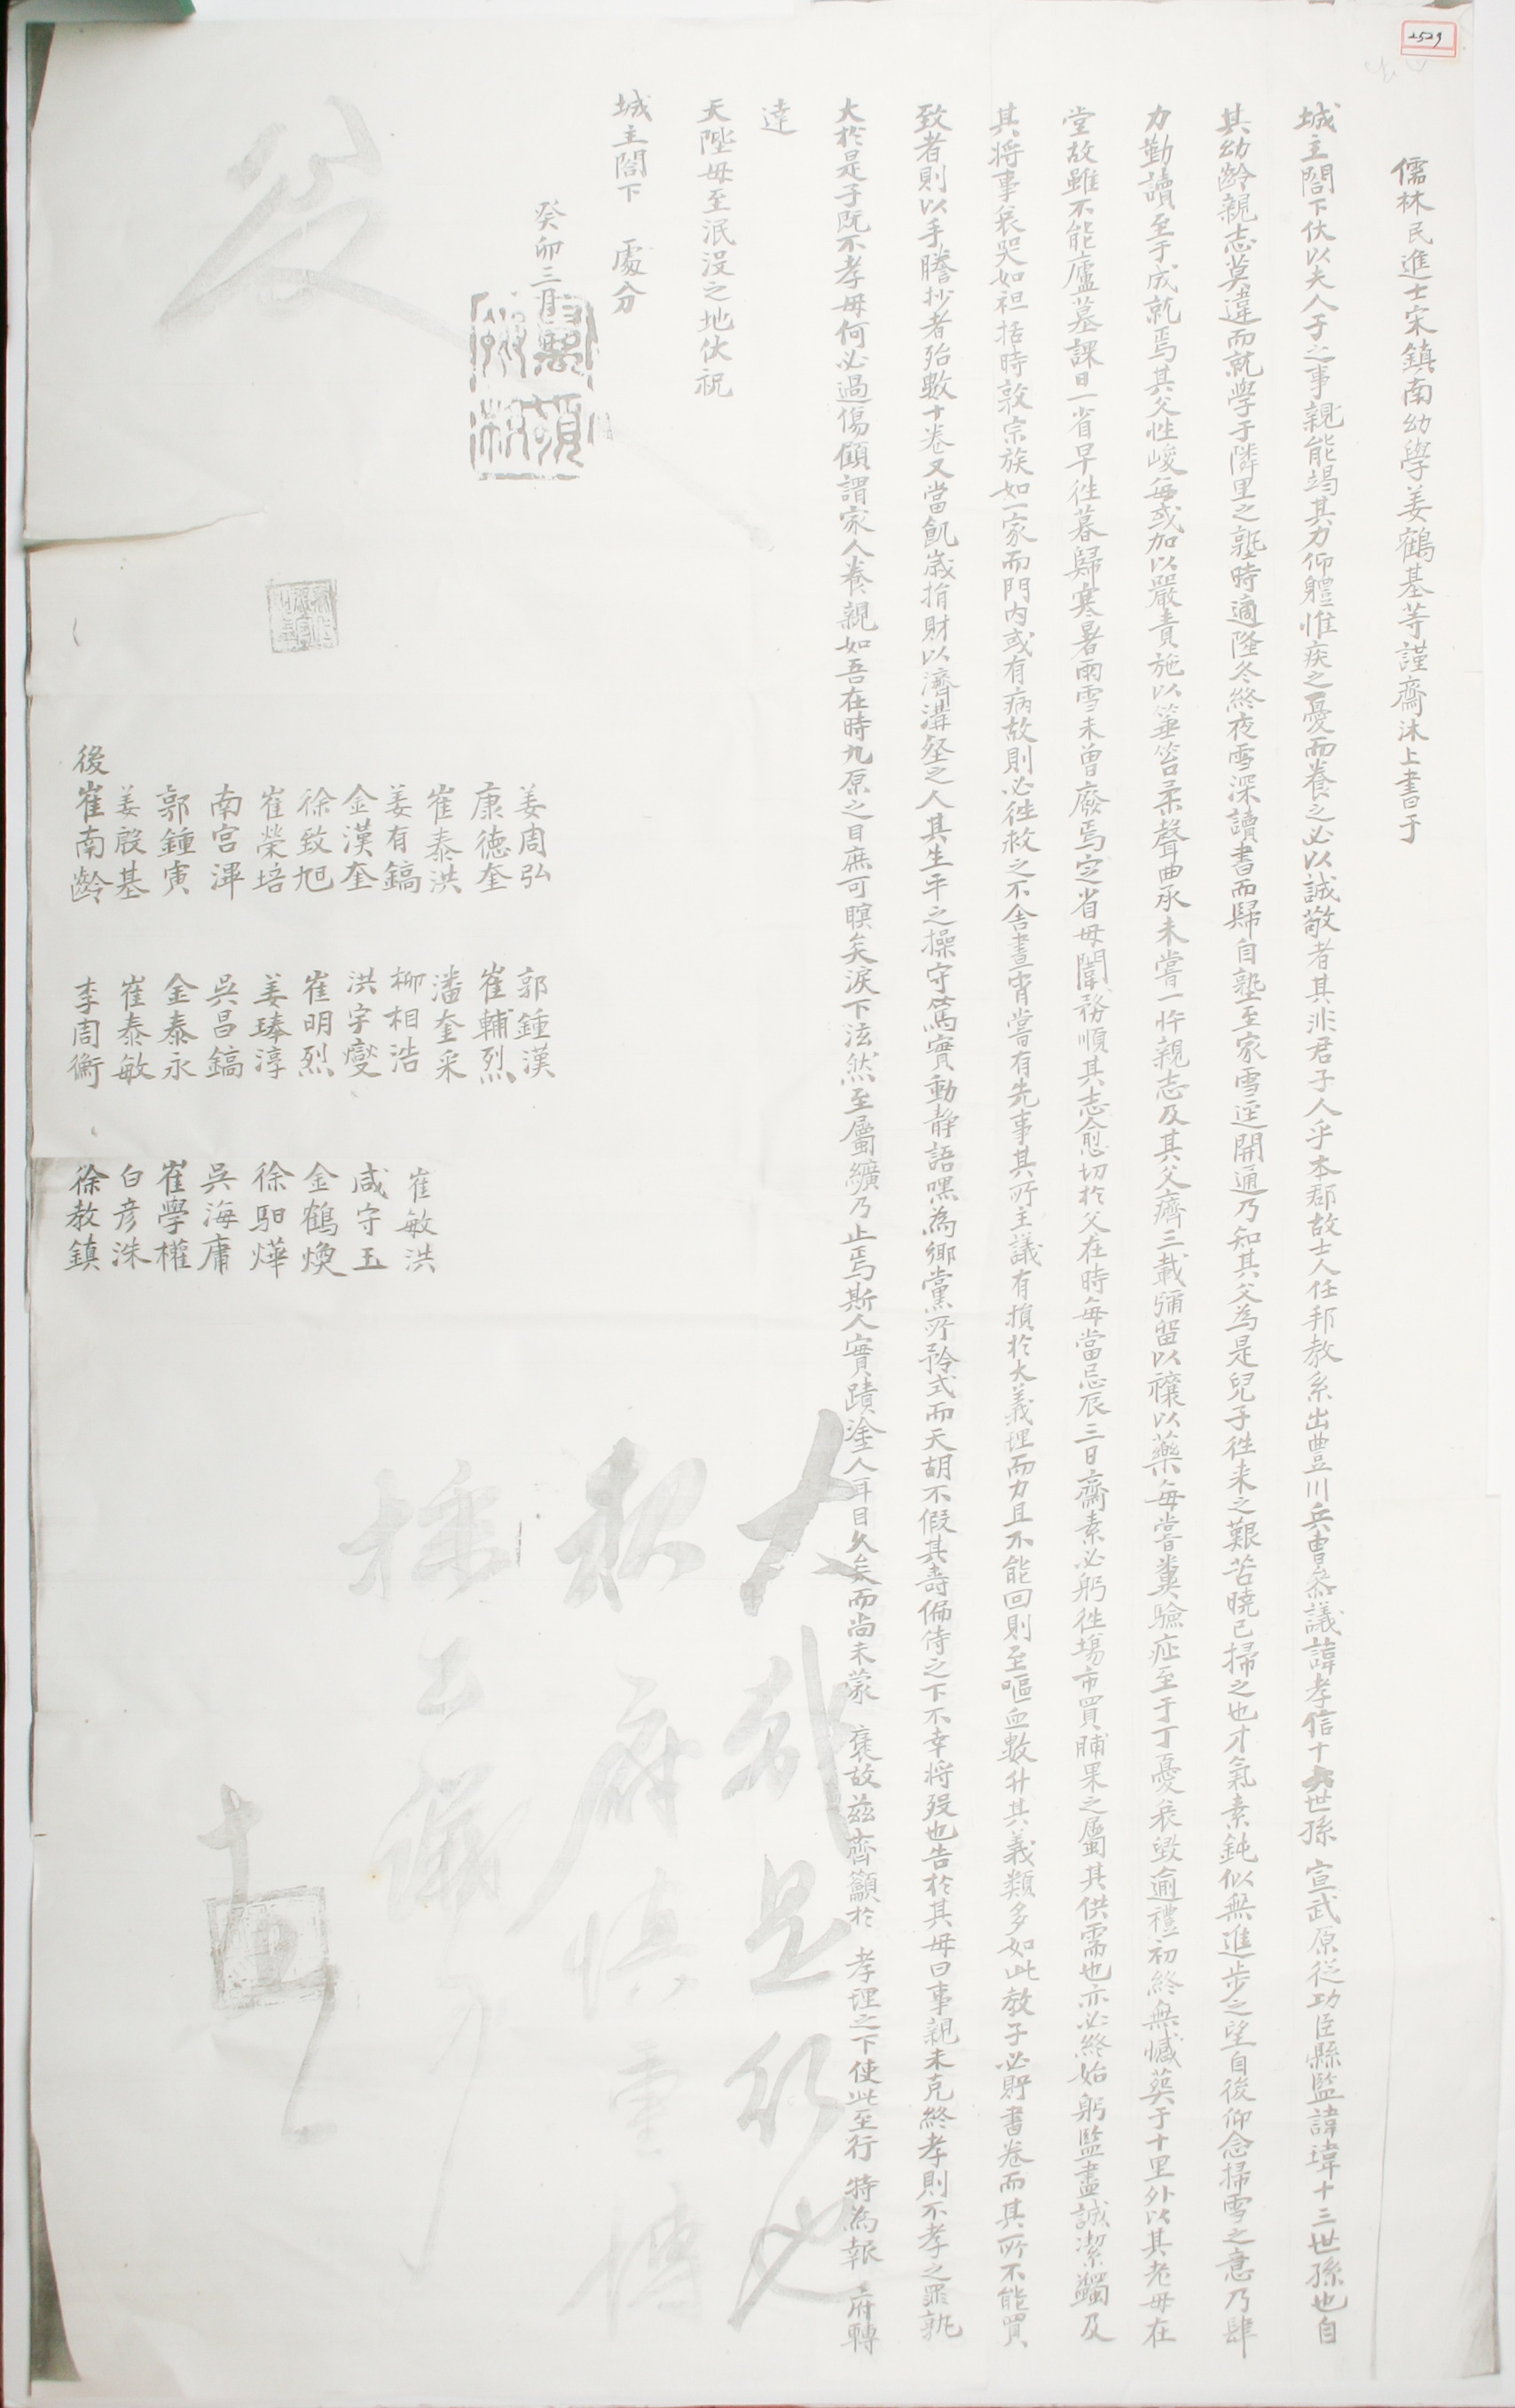 2529
儒林民進士宋鎮南幼學姜鶴基等謹齋沐上書于
城主閤下伏以夫人子之事親能竭其力仰體惟疾之憂而養之必以誠敬者其非君子人乎本郡故士人任邦教系出豊川兵曹參議諱孝信十六世孫 宣武原從功臣縣監諱瑋十三世孫也自
其幼齡親志莫違而就學于隣里之塾時適隆冬終夜雪深讀書而歸自塾至家雪逕開通乃知其父為是兒子往来之艱苦曉已掃之也才氣素鈍似無進步之望自後仰念掃雪之意乃肆
力勤讀至于成就焉其父性峻每或加以嚴責施以箠笞柔聲曲承未嘗一忤親志及其父癠三載彌留以禳以藥每嘗糞驗症至于丁憂哀毀逾禮初終無憾葬于十里外以其老母在
堂故雖不能廬墓課日一省早往暮歸寒暑雨雪未曾廢焉定省母闈務順其志愈切於父在時每當忌辰三日齋素必躬往場市買脯果之屬其供需也亦必終始躬監盡誠潔蠲及
其將事哀哭如袒括時敦宗族如一家而門内或有病故則必往救之不舍晝宵嘗有先事其所主議有損於大義理而力且不能回則至嘔血數升其義類多如此教子必貯書卷而其所不能買
致者則以手謄抄者殆數十卷又當飢歳捐財以濟溝壑之人其生平之操守篤實動静語嘿為鄉黨所矜式而天胡不假其壽偏侍之下不幸将歿也告於其母曰事親未克終孝則不孝之罪孰
大於是子既不孝母何必過傷顧謂家人養親如吾在時九原之目庶可瞑矣淚下泫然至屬纊乃止焉斯人實蹟塗人耳目久矣而尚未蒙 褒故玆齊籲於 孝理之下使此至行 特為報 府轉
達
天陛毋至泯沒之地伏祝
城主閤下 處分
癸卯三月
姜周弘 郭鍾漢
康徳奎 崔輔烈
崔泰洪 潘奎采 崔敏洪
姜有鎬 柳相浩
金漢奎 洪宇燮 咸守玉
徐致旭 崔明烈 金鶴煥
崔榮培 姜琫淳 徐馹燁
南宮渾 吳昌鎬 吳海庸
郭鍾寅 金泰永 崔學權
姜殷基 崔泰敏 白彦洙
後 崔南齡 李周衡 徐教鎮
大哉是行也
報府慎重博
採公議
十五